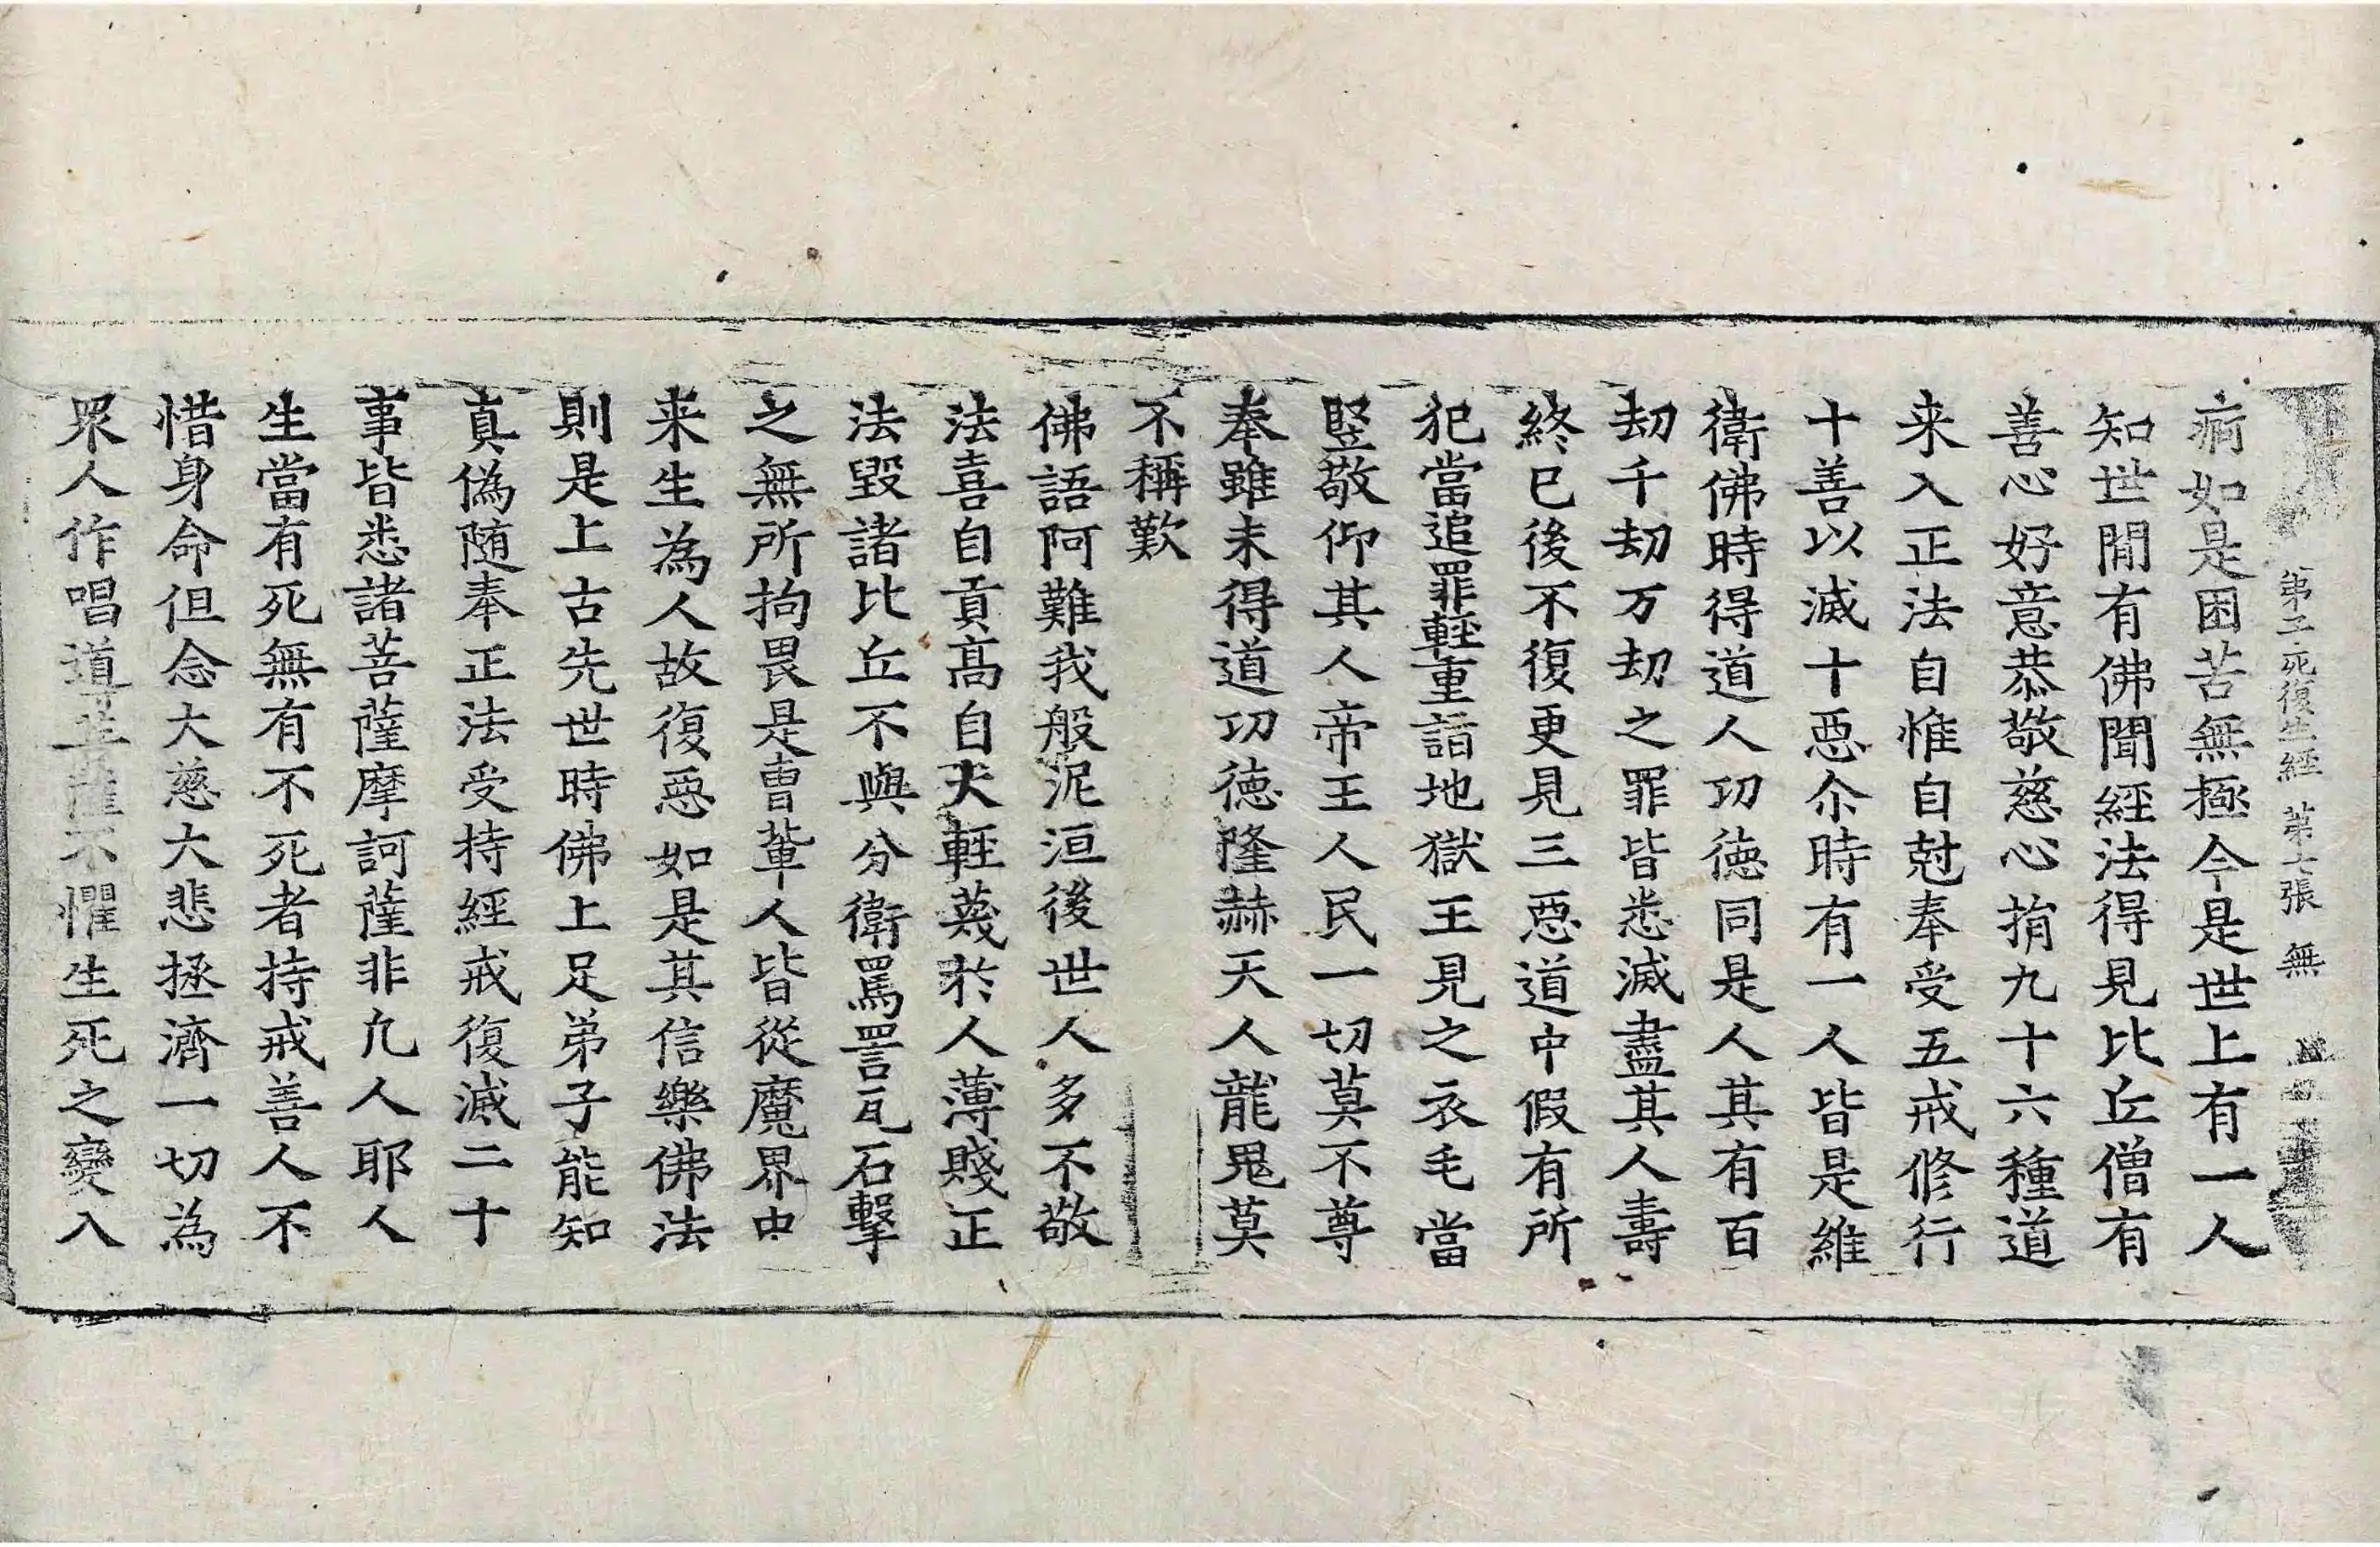 弟子死復生經 第七張 無
病如是困苦無極今是世上有一人
知世閒有佛聞經法得見比丘僧有
善心好意恭敬慈心捐九十六種道
来入正法自惟自尅奉受五戒修行
十善以滅十惡尒時有一人皆是維
衛佛時得道人功德同是人其有百
劫千劫万劫之罪皆悉滅盡其人壽
終已後不復更見三惡道中假有所
犯當追罪輕重詣地獄王見之衣毛當
竪敬仰其人帝王人民一切莫不尊
奉雖未得道功德隆赫天人龍鬼莫
不稱歎
佛語阿難我般泥洹後世人多不敬
法喜自貢高自大輕蔑於人薄賤正
法毀諸比丘不與分衛罵詈瓦石擊
之無所拘畏是曹輩人皆從魔界中
来生為人故復惡如是其信樂佛法
則是上古先世時佛上足弟子能知
真偽随奉正法受持經戒復滅二十
事皆悉諸菩薩摩訶薩非凡人耶人
生當有死無有不死者持戒善人不
惜身命但念大慈大悲拯濟一切為
眾人作唱導菩薩不懼生死之變入